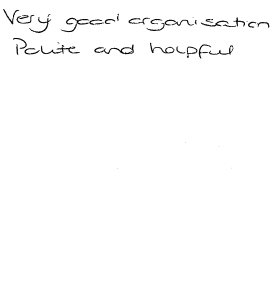 Very good organisation
Polite and helpful